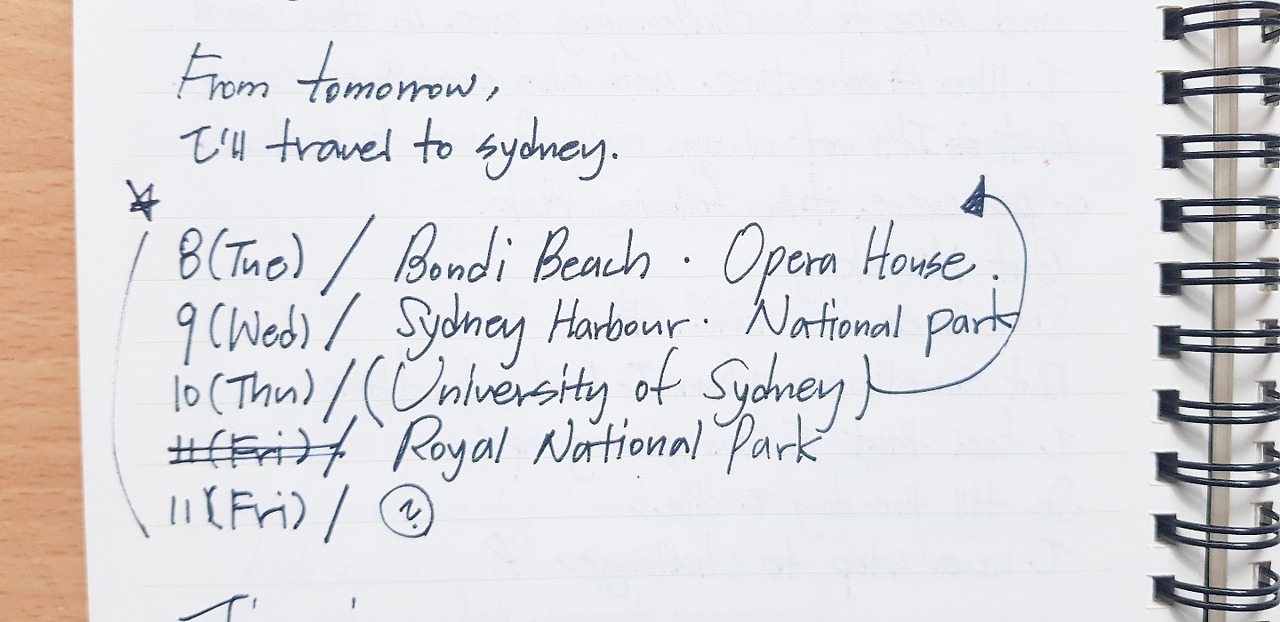 From tomorrow,
I'll travel to sydney.
8(Tue) / Bondi Beach · Opera House.
9(Wed) / Sydney Harbour · National park
10(Thu) / (University of Sydney)
11(Fri) / Royal National Park
11(Fri) / ?